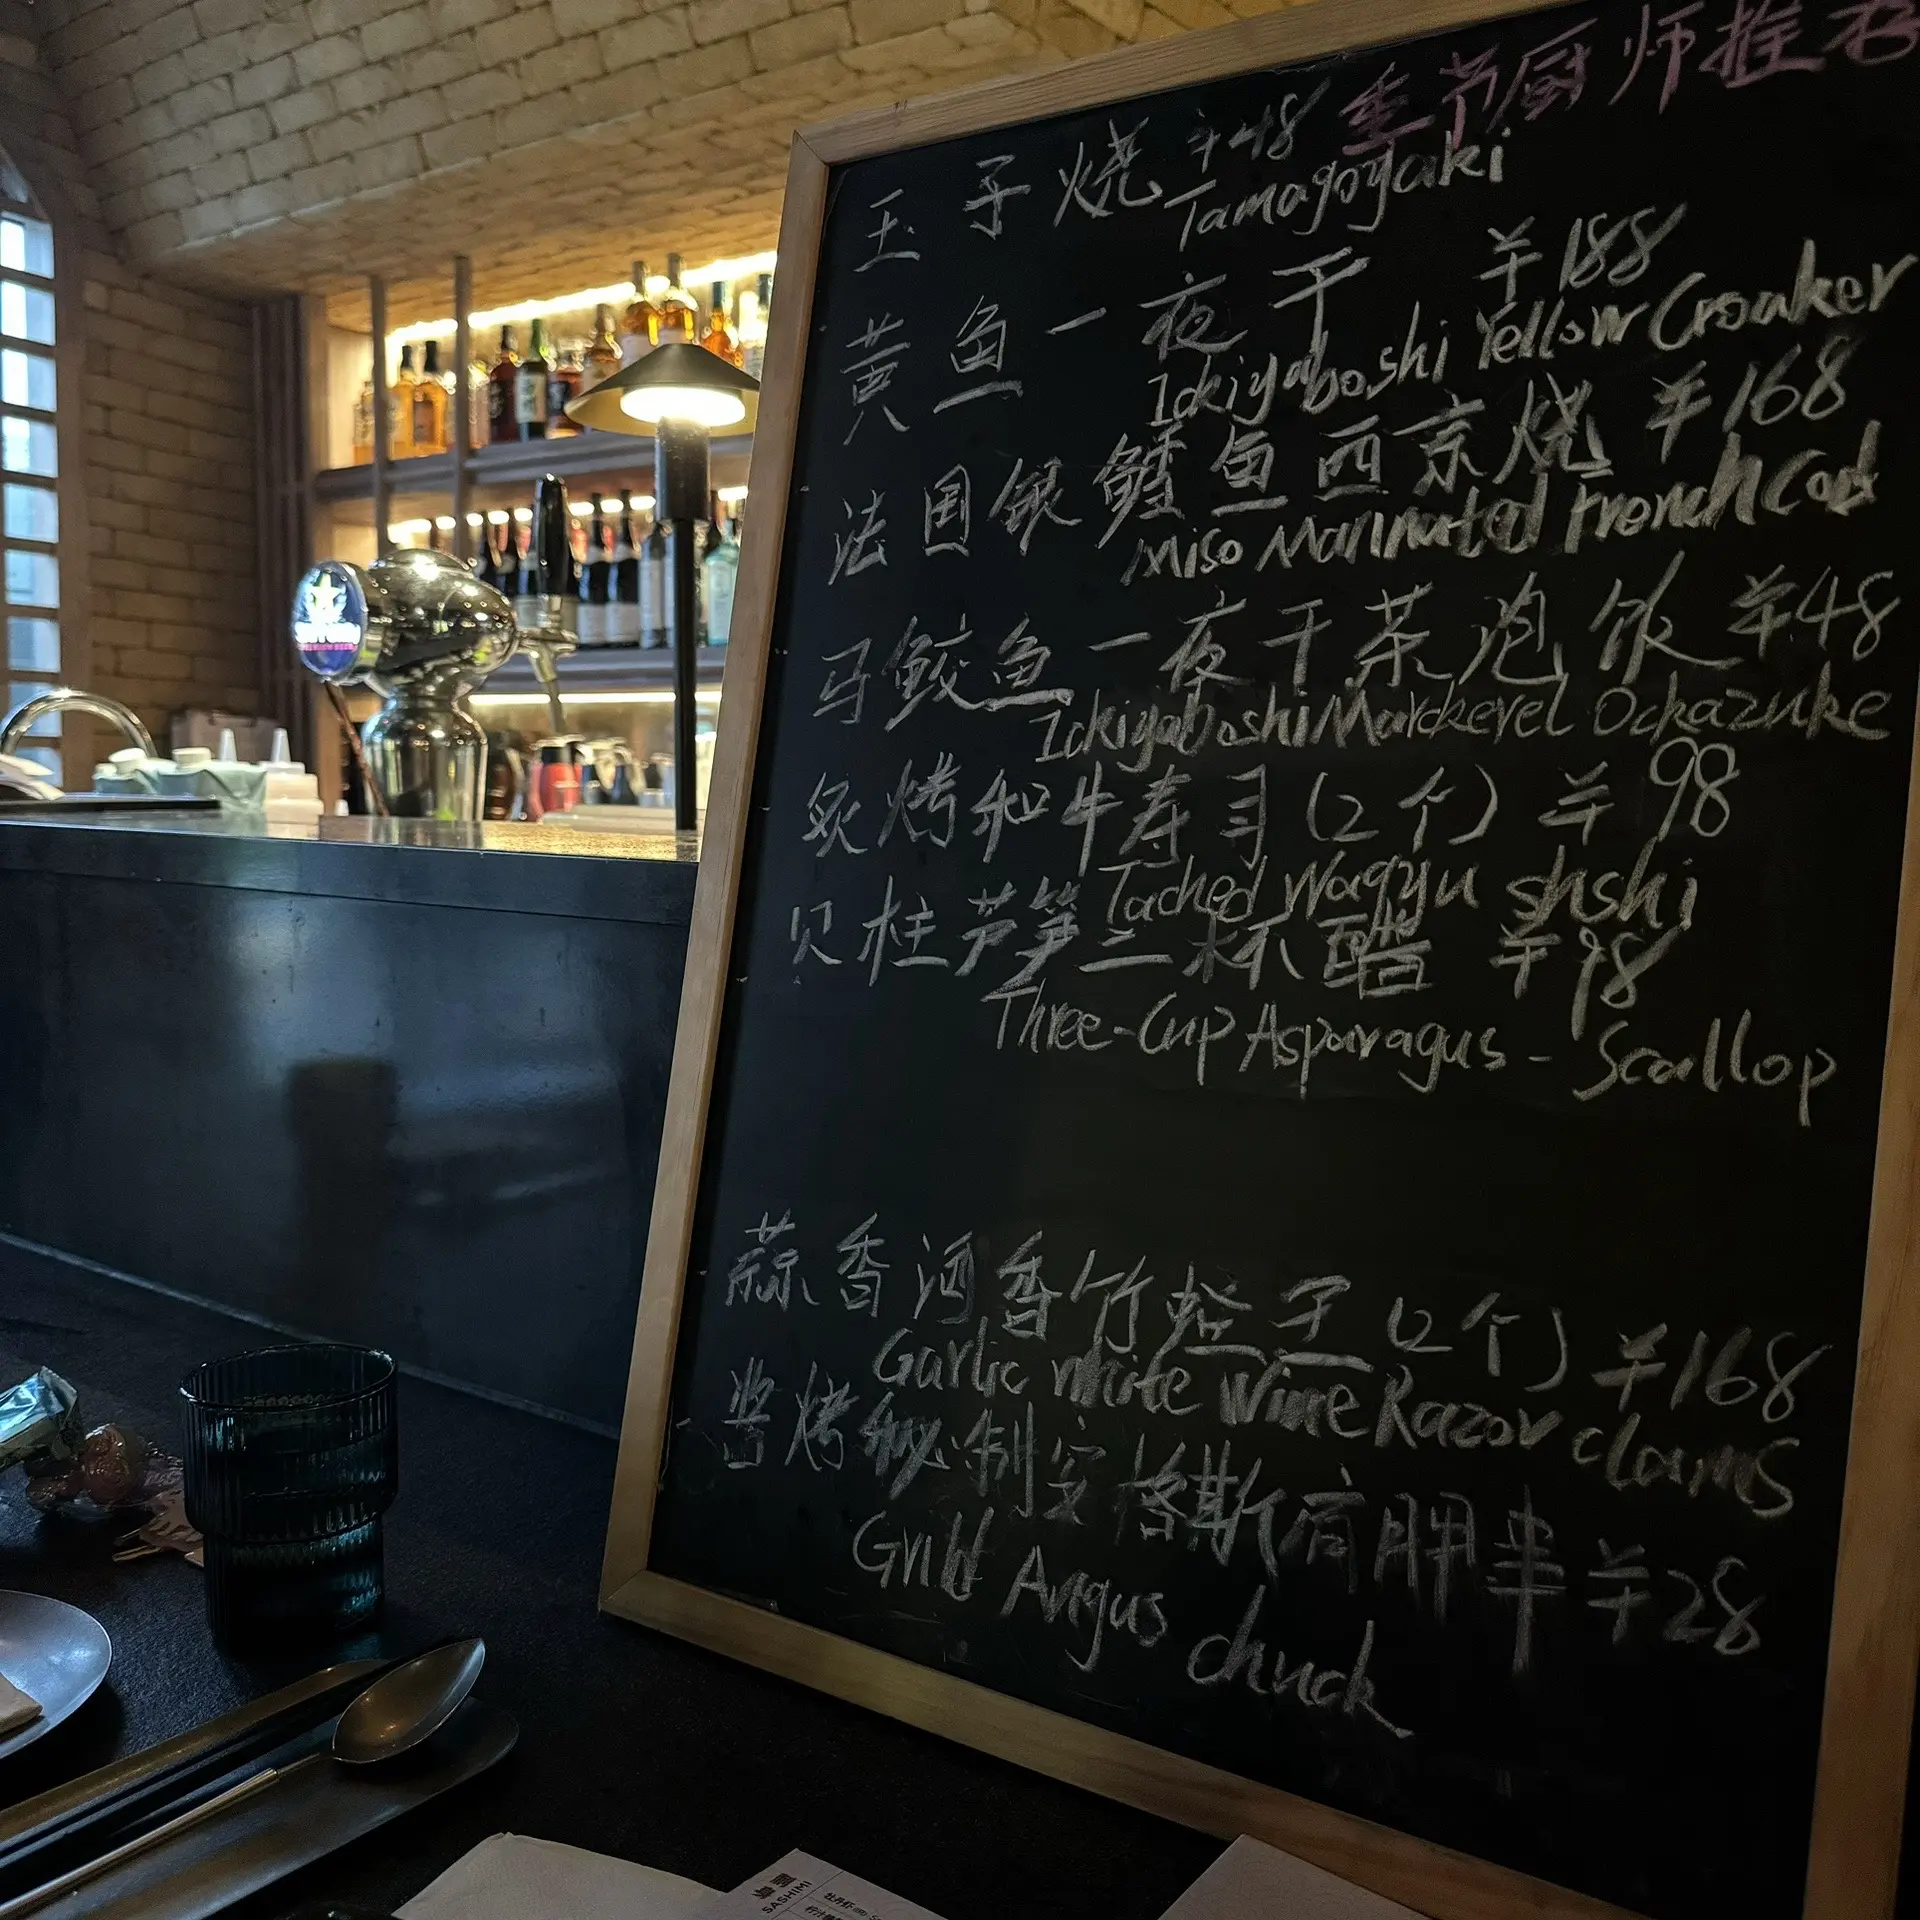 季节厨师推荐
玉子烧 ¥48
Tamagoyaki
黄鱼一夜干 ¥188
Ickiyaboshi Yellow Croaker
法国银鳕鱼西京烧 ¥168
Miso Marinated French Cod
马鲛鱼一夜干茶泡饭 ¥48
Ickiyaboshi Marckerel Ockazuke
炙烤和牛寿司(2个) ¥98
Tached Wagyu shshi
贝柱芦笋二杯醋 ¥98
Three-Cup Asparagus - Scallop
蒜香河香竹蛏王(2个) ¥168
Garlic white Wine Razor clams
酱烤秘制安格斯肩胛串 ¥28
Grill Angus chuck
SASHIMI
牡丹虾